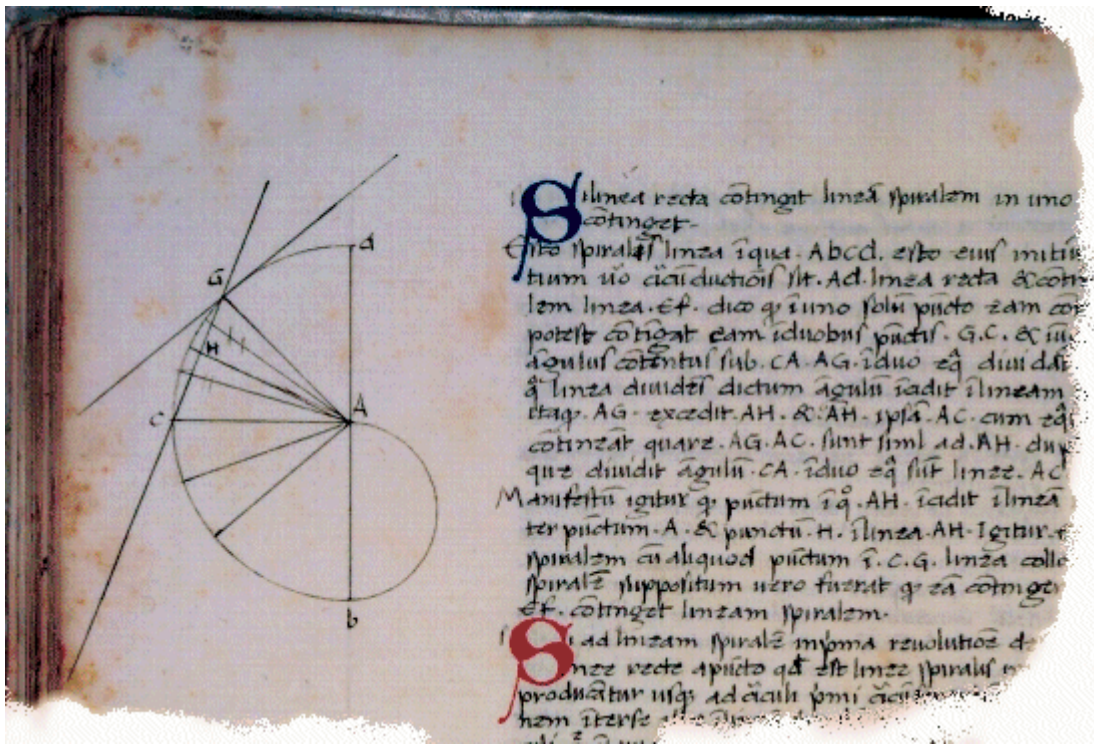 d
G
H
A
C
b
Silinea recta cōtingit lineā spiralem in uno
cōtinget.
Esto spiralis linea īqua. Abcd. esto eius initiū
tium uo. sit. Ad. linea recta & cōtin
lem linea. Ef. dico q iuno solū pūcto eam con
potest cōtigat eam iduobus pūctis. G.C. &
āgulus cōtentus sub. CA. AG. iduo eq̄ diuidat
q̄ linea diuidēs dictum āgulū icidit ilineam
itaq. AG. excedit. AH. & AH. ipsā. AC. cum
cōtineāt quare. AG. AC. sunt siml ad. AH. dup
que diuidit āgulū. CA. iduo eq̄ sūt linee. AC
Manifestū igitur q pūctum ī q. AH. icidit ilineā
ter pūctum. A & punctū. H. ilinea. AH. Igitur
spiralem cū aliquod pūctum ī. C.G. linea collo
spiralē suppositum uero fuerat q eā cōtinger
Ef. cōtinget lineam spiralem.
Si ad lineam spiralē inprima reuolutiōe de
nee recte apūcto qd est linee spiralis
producātur usq ad cīculi pmi
nem iterse